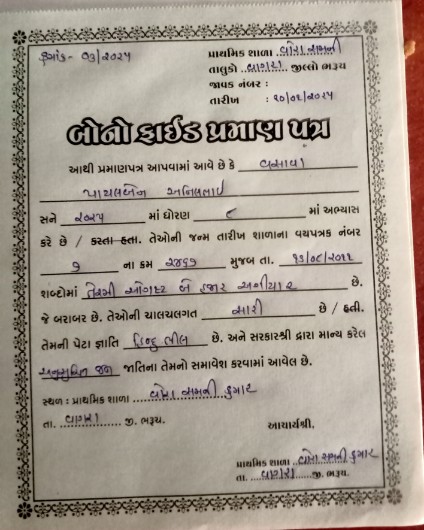 ક્રમાંક- ૦૩/૨૦૨૫
પ્રાથમિક શાળા વોરા સમની
તાલુકો વાગરા જીલ્લો ભરૂચ
જાવક નંબર :
તારીખ : ૧૦/૦૬/૨૦૨૫
બોનોફાઈડ પ્રમાણ પત્ર
આથી પ્રમાણપત્ર આપવામાં આવે છે કે વસાવા
પાયલબેન અનિલભાઈ
સને ૨૦૨૫ માં ધોરણ ૮ માં અભ્યાસ
કરે છે / કરતા હતા. તેઓની જન્મ તારીખ શાળાના વયપત્રક નંબર
૭ ના ક્રમ ૨૪૬૭ મુજબ તા. ૧૩/૦૮/૨૦૧૧
શબ્દોમાં તેરમી ઓગષ્ટ બે હજાર અગીયાર છે.
જે બરાબર છે. તેઓની ચાલચલગત સારી છે / હતી.
તેમની પેટા જ્ઞાતિ હિન્દુ ભીલ છે. અને સરકારશ્રી દ્વારા માન્ય કરેલ
અનુસુચિત જન જાતિના તેમનો સમાવેશ કરવામાં આવેલ છે.
સ્થળ : પ્રાથમિક શાળા વોરા સમની કુમાર
તા. વાગરા જી. ભરૂચ.
આચાર્યશ્રી,
પ્રાથમિક શાળા વોરા સમની કુમાર
તા. વાગરા જી. ભરૂચ.